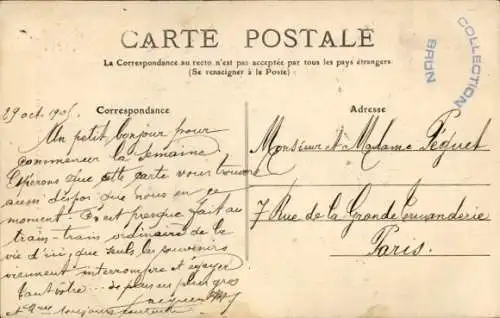 CARTE POSTALE
La Correspondance au recto n'est pas acceptée par tous les pays étrangers
(Se renseigner à la Poste)
COLLECTION
BRUN
Correspondance
Adresse
29 oct. 190
Un petit bonjour pour
commencer la semaine
Espérons que cette carte vous trouvera
aussi dispos que nous en ce
moment. On est presque fait au
train-train ordinaire de la
vie d'ici, que seuls les souvenirs
viennent interrompre et égayer
tant vôtre de plus en plus gros
toujours
Monsieur et Madame Péquet
7 Rue de la Grande Truanderie
Paris.